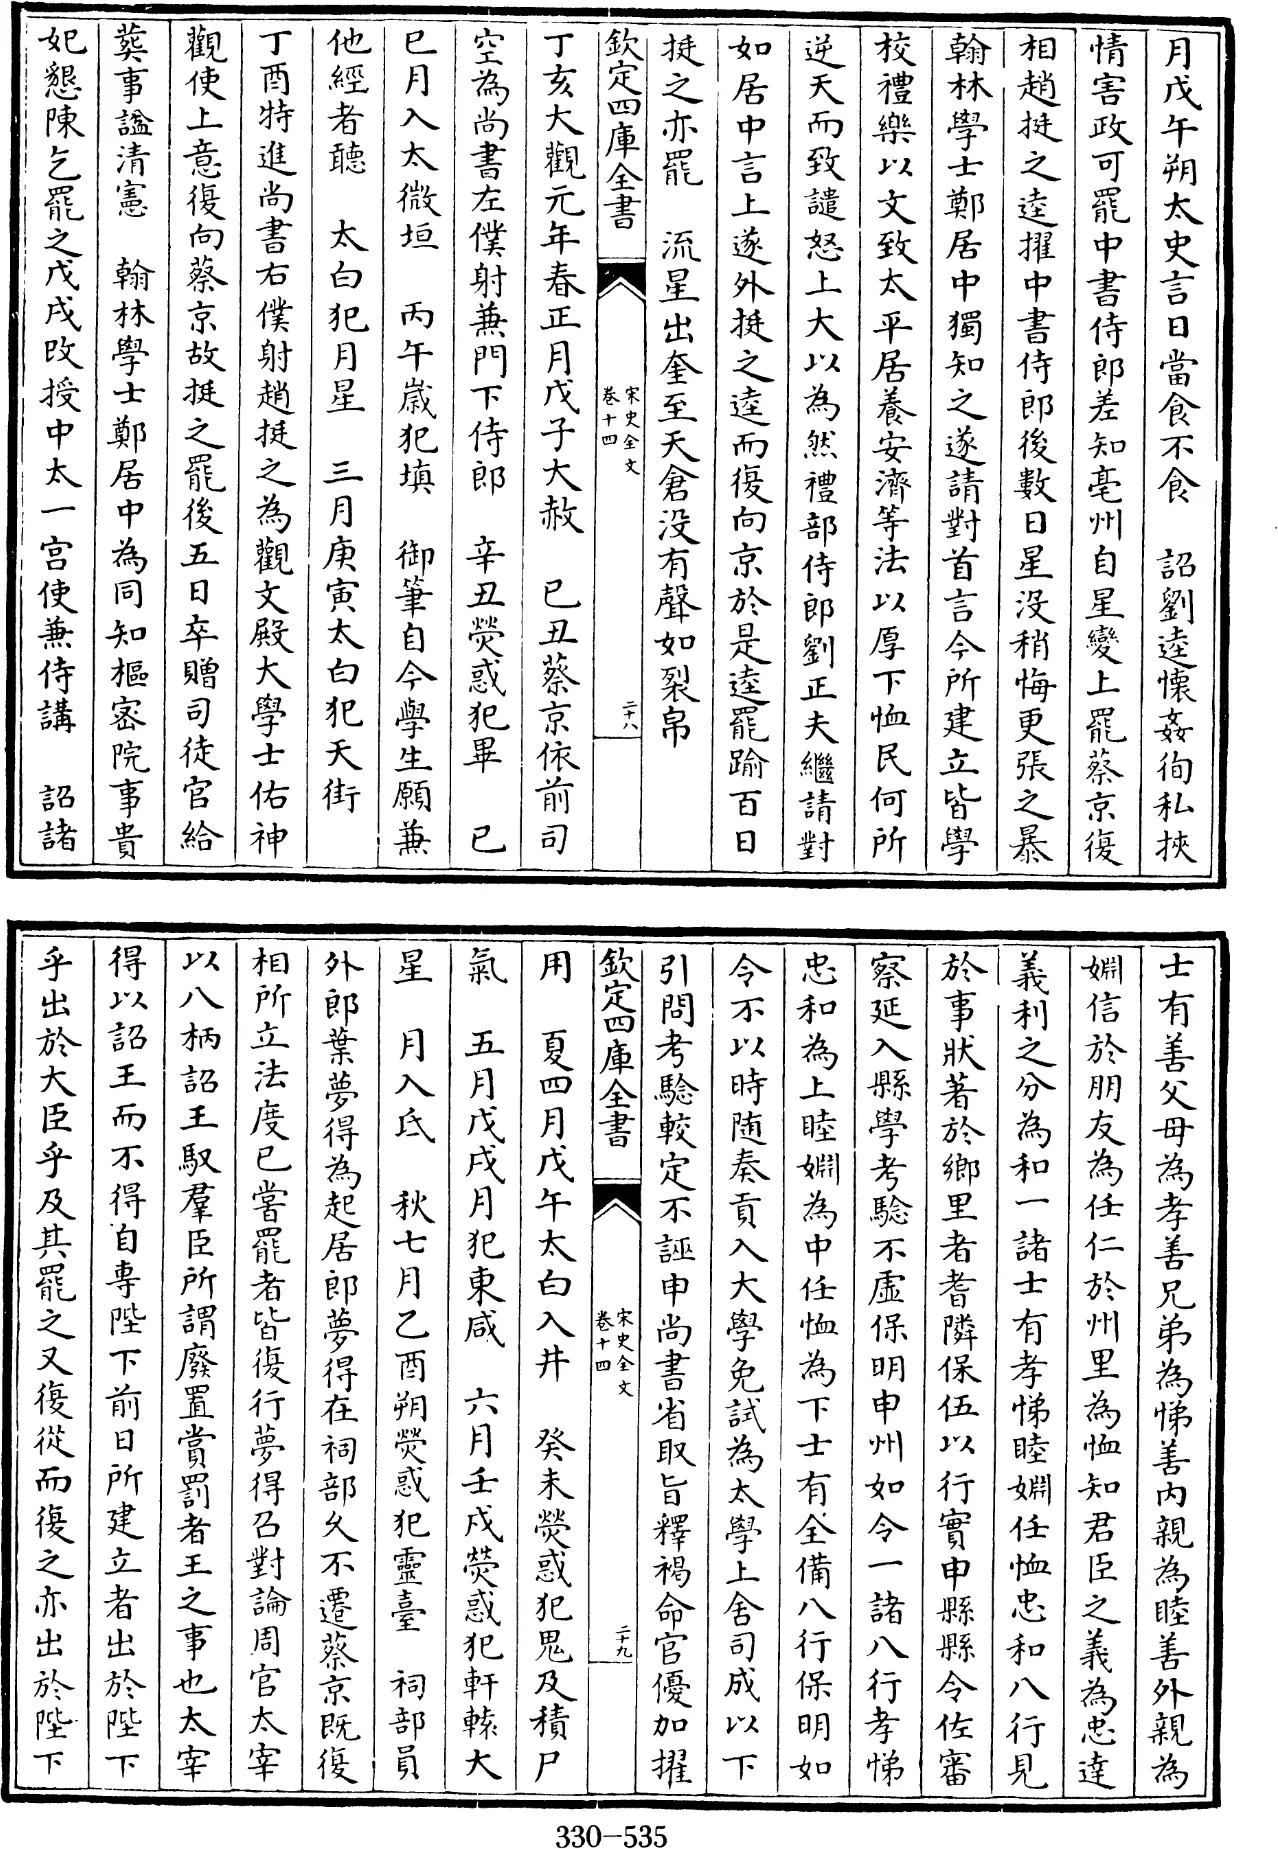 月戊午朔太史言日當食不食　詔劉逵懷姦徇私挾
情害政可罷中書侍郎差知亳州自星變上罷蔡京復
相趙挺之逵擢中書侍郎後數日星没稍悔更張之暴
翰林學士鄭居中獨知之遂請對首言今所建立皆學
校禮樂以文致太平居養安濟等法以厚下恤民何所
逆天而致譴怒上大以為然禮部侍郎劉正夫繼請對
如居中言上遂外挺之逵而復向京於是逵罷踰百日
挺之亦罷　流星出奎至天倉没有聲如裂帛
欽定四庫全書
宋史全文
卷十四
二十八
丁亥大觀元年春正月戊子大赦　已丑蔡京依前司
空為尚書左僕射兼門下侍郎　辛丑熒惑犯畢　已
巳月入太微垣　丙午嵗犯填　御筆自今學生願兼
他經者聽　太白犯月星　三月庚寅太白犯天街
丁酉特進尚書右僕射趙挺之為觀文殿大學士佑神
觀使上意復向蔡京故挺之罷後五日卒贈司徒官給
葬事諡清憲　翰林學士鄭居中為同知樞密院事貴
妃懇陳乞罷之戊戌改授中太一宫使兼侍講　詔諸
士有善父母為孝善兄弟為悌善内親為睦善外親為
婣信於朋友為任仁於州里為恤知君臣之義為忠達
義利之分為和一諸士有孝悌睦婣任恤忠和八行見
於事狀著於鄉里者耆隣保伍以行實申縣縣令佐審
察延入縣學考驗不虛保明申州如令一諸八行孝悌
忠和為上睦婣為中任恤為下士有全備八行保明如
令不以時随奏貢入大學免試為太學上舍司成以下
引問考驗較定不誣申尚書省取旨釋褐命官優加擢
欽定四庫全書
宋史全文
卷十四
二十九
用　夏四月戊午太白入井　癸未熒惑犯鬼及積尸
氣　五月戊戌月犯東咸　六月壬戌熒惑犯軒轅大
星　月入氐　秋七月乙酉朔熒惑犯靈臺　祠部員
外郎葉夢得為起居郎夢得在祠部久不遷蔡京既復
相所立法度已嘗罷者皆復行夢得召對論周官太宰
以八柄詔王馭羣臣所謂廢置賞罰者王之事也太宰
得以詔王而不得自專陛下前日所建立者出於陛下
乎出於大臣乎及其罷之又復從而復之亦出於陛下
330-535